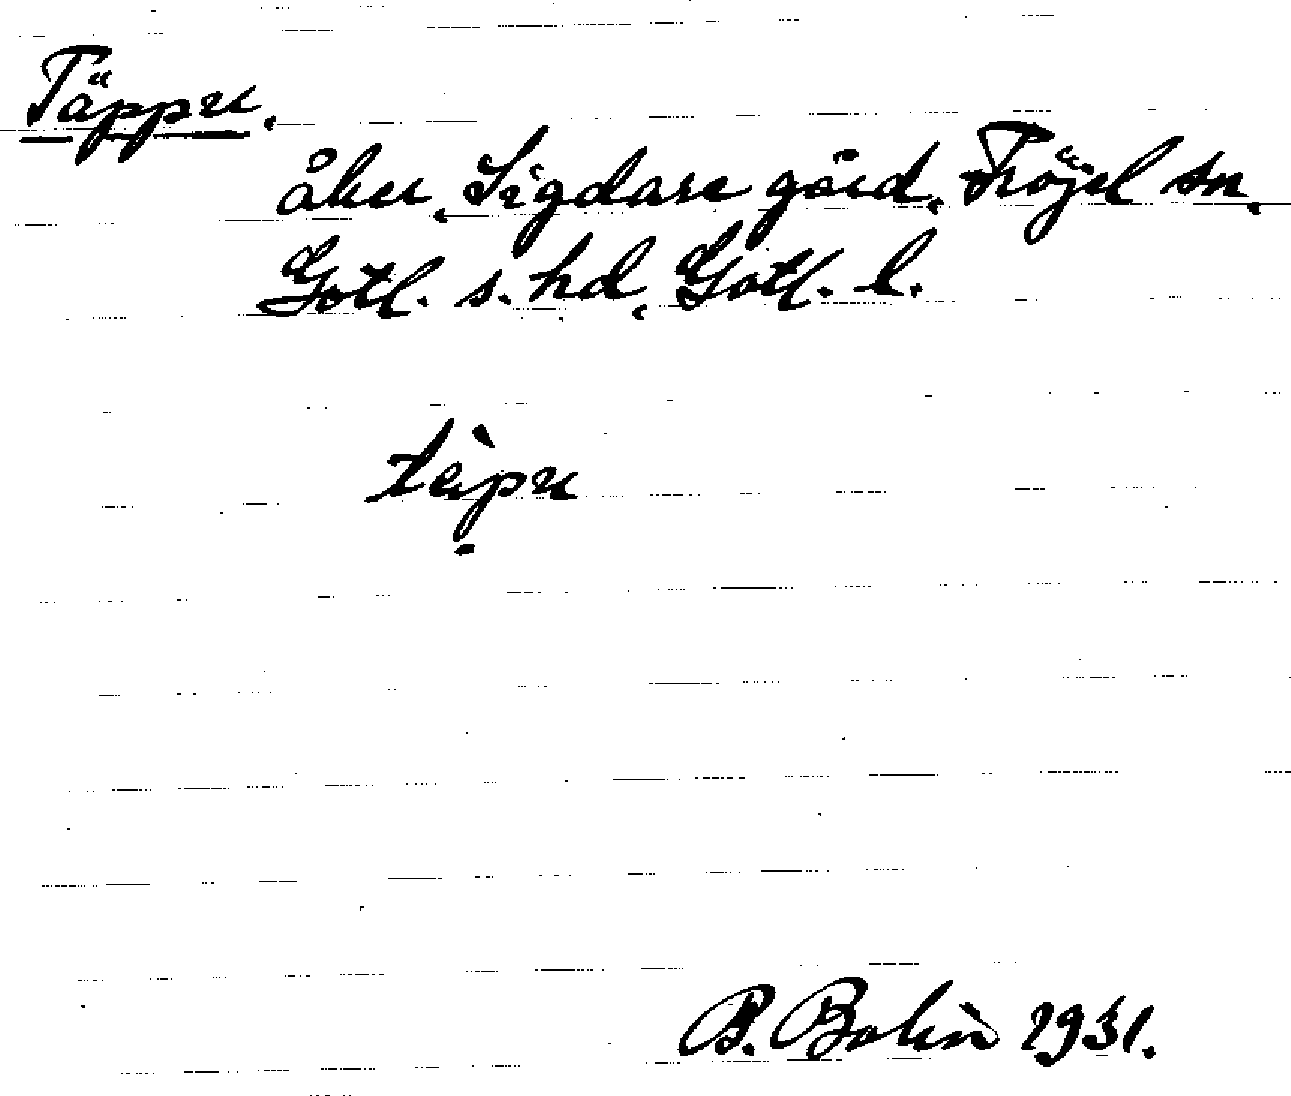 Täppu.
åker, Sigdare gård, Fröjel sn,
Gotl. s. hd, Gotl. l.
tèpu
B. Bolin 1931.